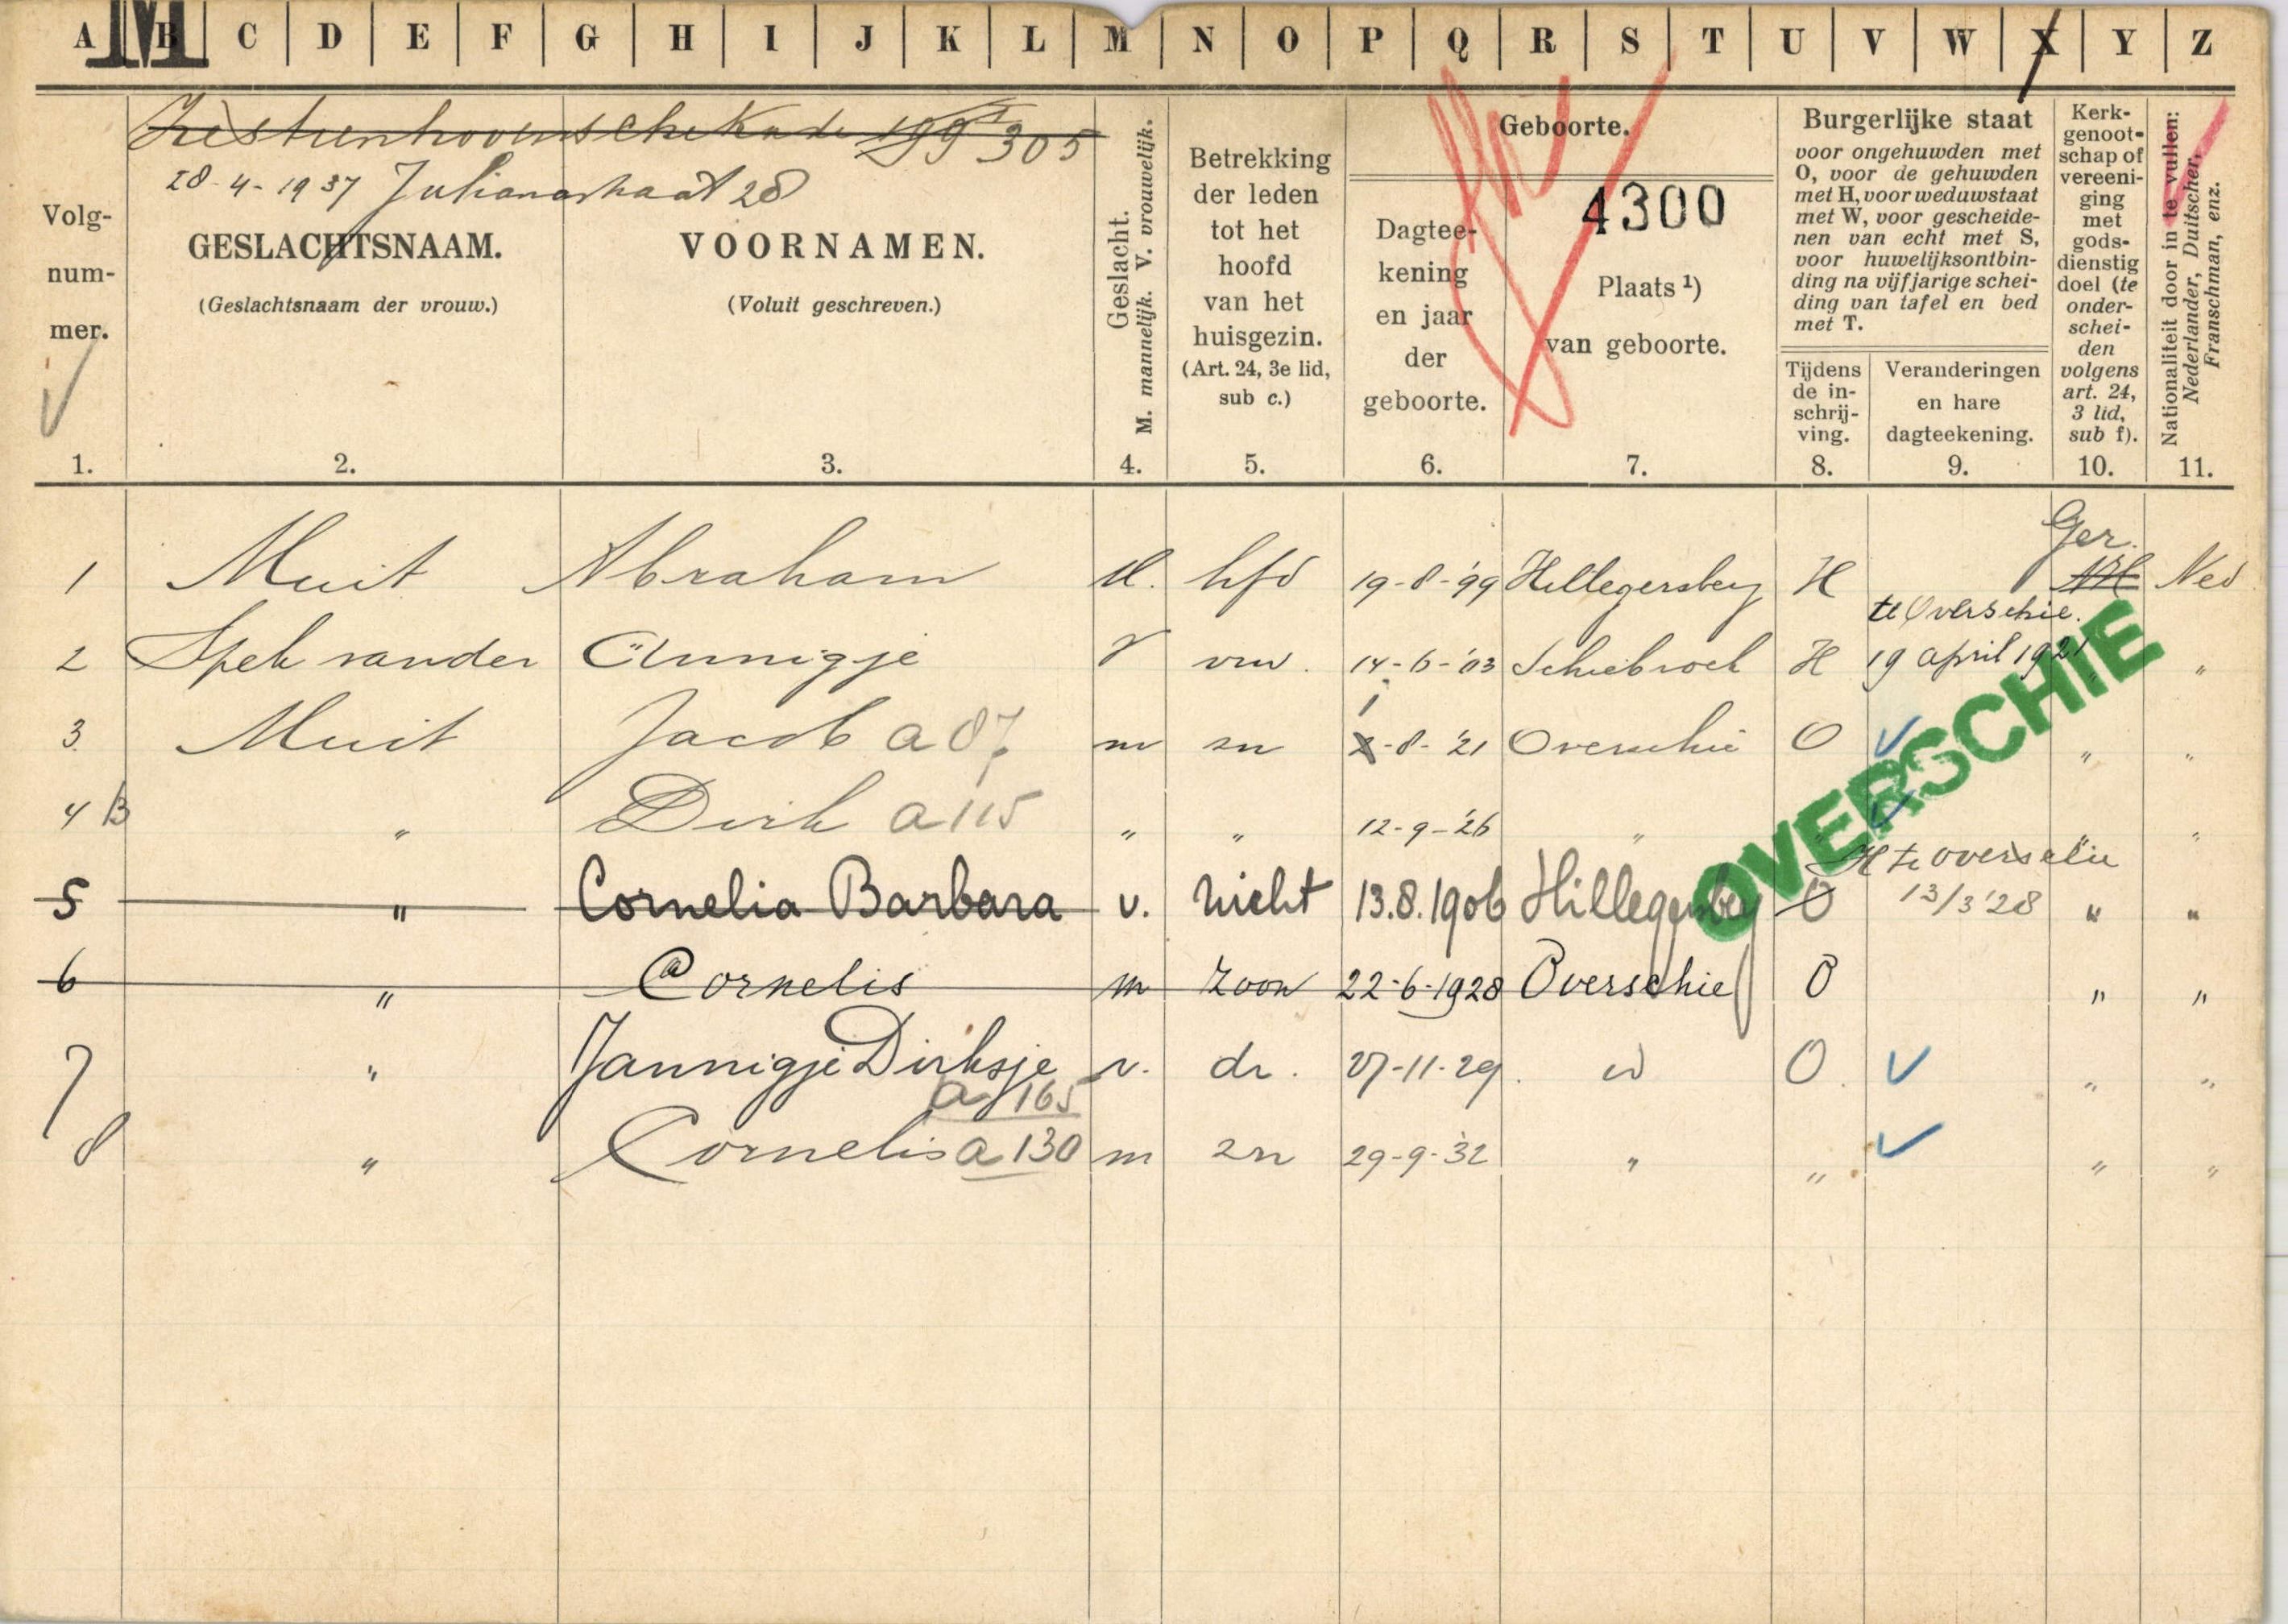 A B C D E F G H I J K L M N O P Q R S T U V W X Y Z
M
Zestienhovenschekade 199 I 305
28-4-1937 Julianastraat 28
Volg-
num-
mer.
1.
GESLACHTSNAAM.
(Geslachtsnaam der vrouw.)
2.
VOORNAMEN.
(Voluit geschreven.)
3.
Geslacht.
M. mannelijk. V. vrouwelijk.
4.
Betrekking
der leden
tot het
hoofd
van het
huisgezin.
(Art. 24, 3e lid,
sub c.)
5.
Geboorte.
Dagtee-
kening
en jaar
der
geboorte.
6.
4300
Plaats ¹)
van geboorte.
7.
Burgerlijke staat
voor ongehuwden met
O, voor de gehuwden
met H, voor weduwstaat
met W, voor gescheide-
nen van echt met S,
voor huwelijksontbin-
ding na vijfjarige schei-
ding van tafel en bed
met T.
Tijdens
de in-
schrij-
ving.
8.
Veranderingen
en hare
dagteekening.
9.
Kerk-
genoot-
schap of
vereeni-
ging
met
gods-
dienstig
doel (te
onder-
schei-
den
volgens
art. 24,
3 lid,
sub f).
10.
Nationaliteit door in te vullen:
Nederlander, Duitscher,
Franschman, enz.
11.
Ger.
1 Muit Abraham M. hfd 19-8-'99 Hillegersberg H NH Ned
te Overschie.
2 Spek van der Annigje V vrw. 14-6-'03 Schiebroek H 19 april 1921 " "
1
3 Muit Jacob a 87 m zn 2-8-'21 Overschie O " "
4 B " Dirk a 115 " " 12-9-'26 " " " "
H te Overschie
5 " Cornelia Barbara v. nicht 13.8.1906 Hillegersberg O 13/3 '28 " "
6 " Cornelis m zoon 22-6-1928 Overschie O " "
7 " Jannigje Dirksje v. dr. 27-11-29. id O. " "
a 165
8 " Cornelis a 130 m zn 29-9-'32 " " " "
OVERSCHIE